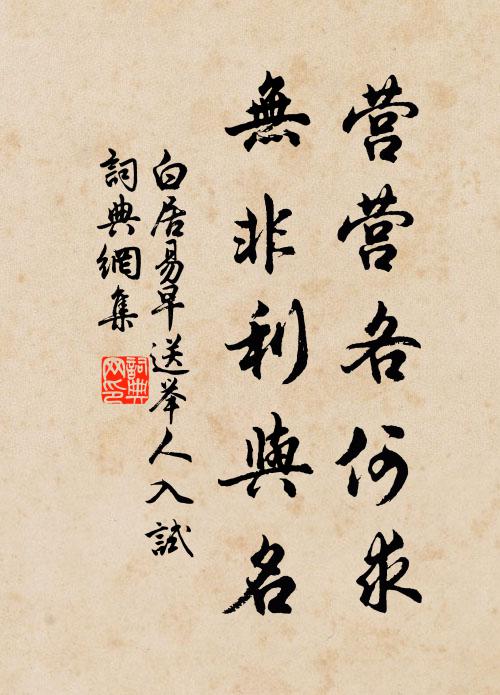 营营各何求
無非利與名
白居易早送举人入試
詞典網集
詞典网印